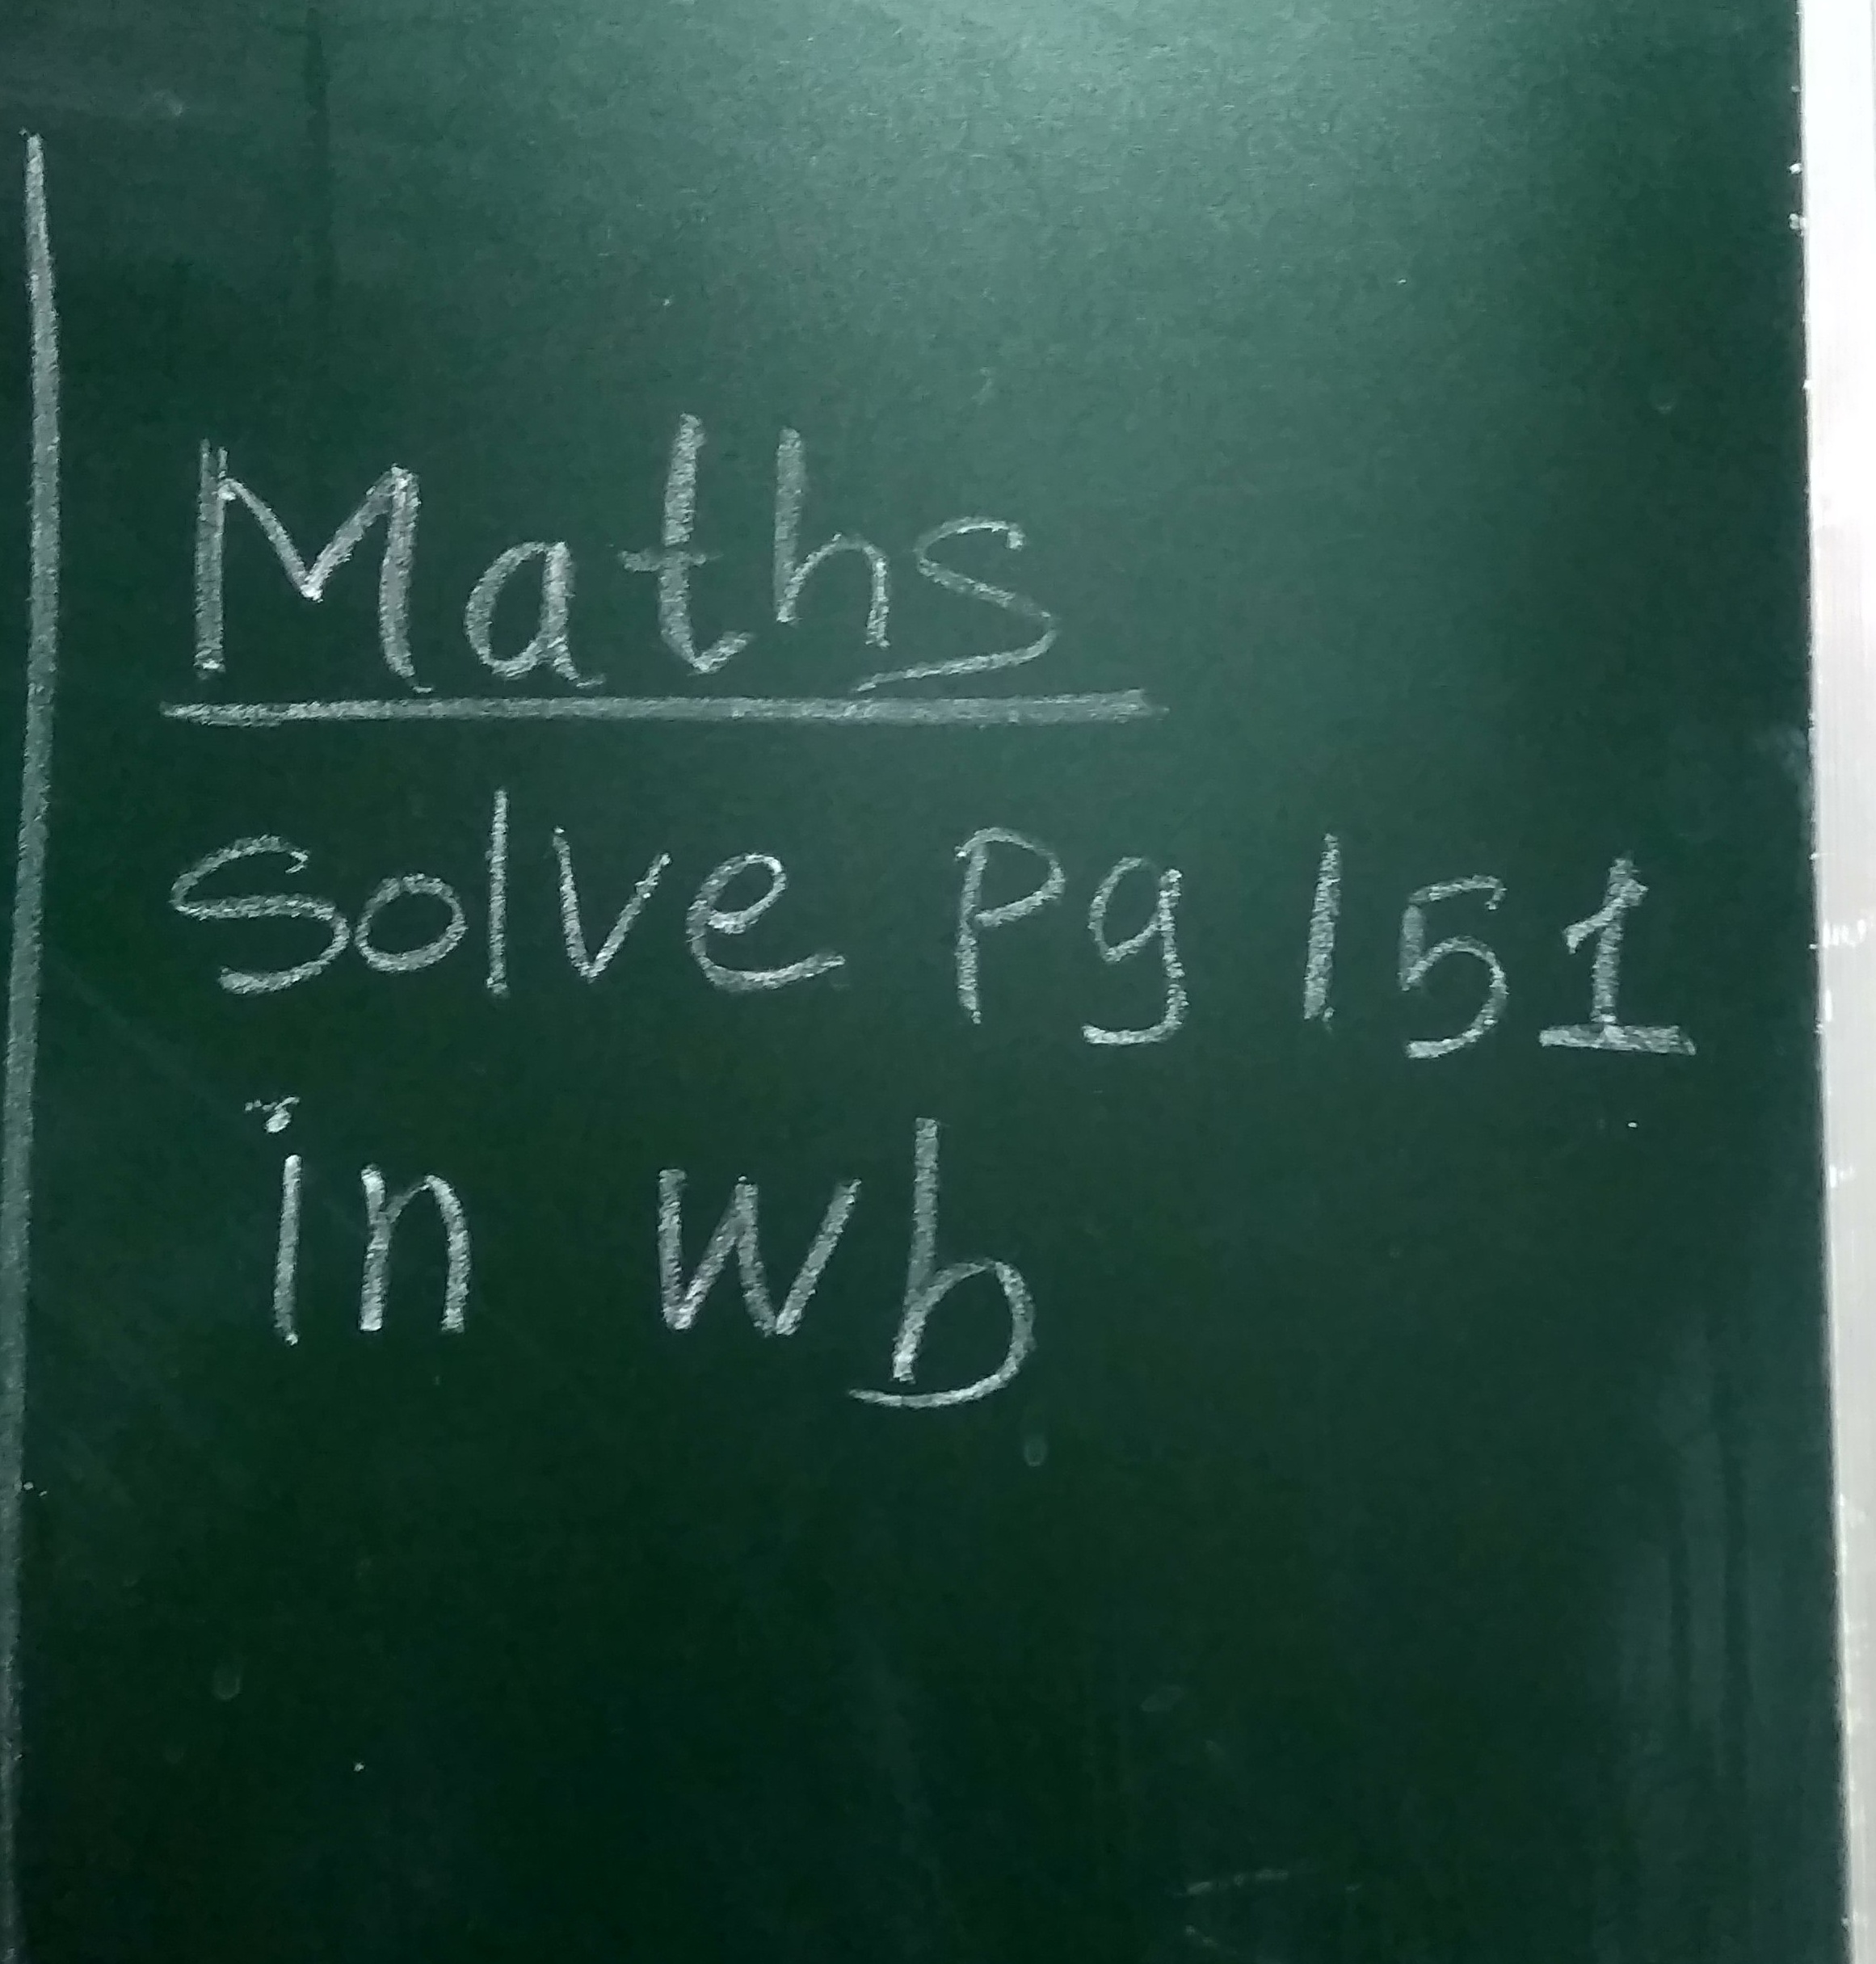 Maths
Solve Pg 151
in wb